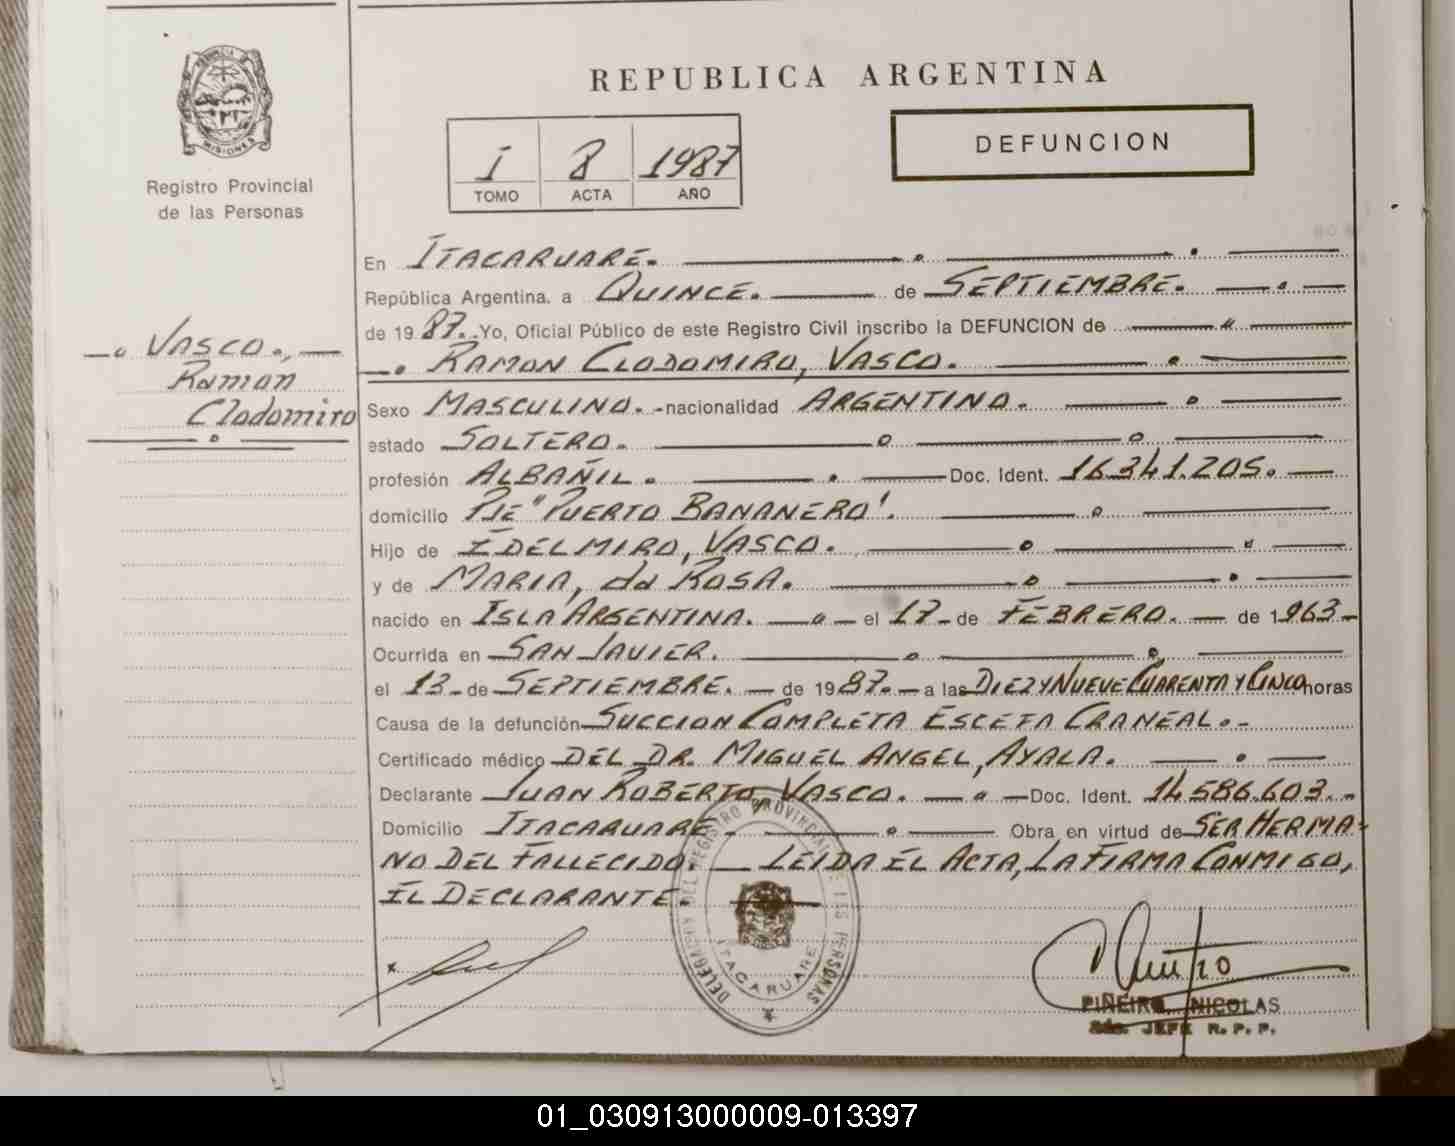 REPUBLICA ARGENTINA
PROVINCIA DE MISIONES
Registro Provincial
de las Personas
I 8 1987
TOMO ACTA AÑO
DEFUNCION
VASCO.,
Ramon
Clodomiro
En ITACARUARE.
República Argentina, a QUINCE. de SEPTIEMBRE.
de 1987. Yo, Oficial Público de este Registro Civil inscribo la DEFUNCION de
RAMON CLODOMIRO, VASCO.
Sexo MASCULINO. - nacionalidad ARGENTINO.
estado SOLTERO.
profesión ALBAÑIL. Doc. Ident. 16.341.205.
domicilio PJE "PUERTO BANANERO".
Hijo de IDELMIRO, VASCO.
y de MARIA, da ROSA.
nacido en ISLA ARGENTINA. el 17 de FEBRERO. de 1963
Ocurrida en SAN JAVIER.
el 13 de SEPTIEMBRE. de 1987. a las DIEZ Y NUEVE CUARENTA Y CINCO horas
Causa de la defunción SUCCION COMPLETA ESCETA CRANEAL.
Certificado médico DEL DR. MIGUEL ANGEL, AYALA.
Declarante JUAN ROBERTO, VASCO. Doc. Ident. 14.586.603.
Domicilio ITACARUARE. Obra en virtud de SER HERMA-
NO DEL FALLECIDO. LEIDA EL ACTA, LA FIRMA CONMIGO,
EL DECLARANTE.
DELEGACION DEL REGISTRO PROVINCIAL DE LAS PERSONAS
ITACARUARE
PIÑEIRO NICOLAS
JEFE R. P. P.
01_030913000009-013397